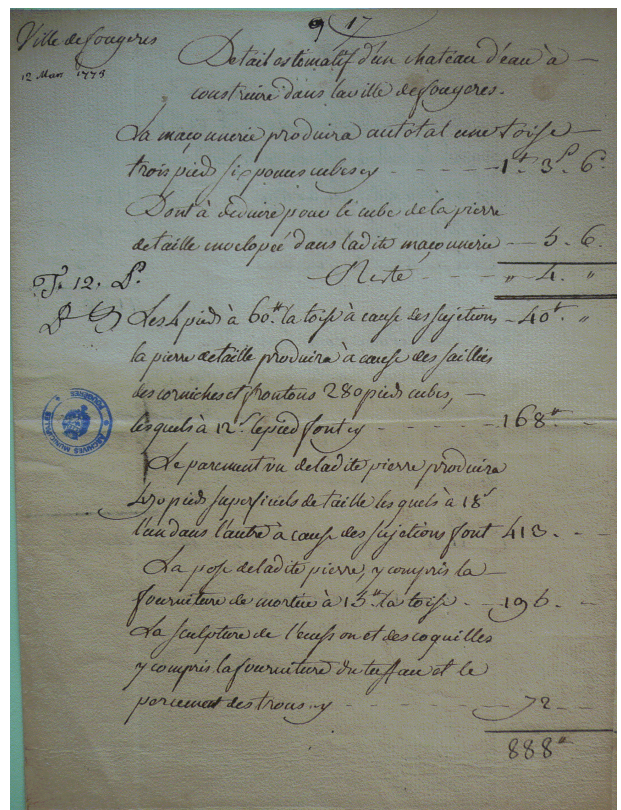 9 17
Ville de fougeres
12 Mars 1773
Detail estimatif d'un chateau d'eau à
construire dans la ville de fougeres.
La maçonnerie produira au total une toise
trois pieds six pouces cubes cy - - - - 1t. 3p. 6.
Dont à deduire pour le cube de la pierre
de taille envelopée dans ladite maçonnerie - - 5. 6.
Reste - - - „ 4. „
T. 12. P.
Les 4 pieds à 60# la toise à cause des sujetions - 40#. „
la pierre de taille produira à cause des saillies
des corniches et frontons 280 pieds cubes, -
lesquels à 12s le pied font cy - - - - 168# -
Le parement vu de ladite pierre produira
470 pieds superficiels de taille lesquels à 18s
l'un dans l'autre à cause des sujetions font 413. - -
La pose de ladite pierre, y compris la
fourniture de mortier à 15# la toise. - 195. -
La sculpture de l'ecusson et des coquilles
y compris la fourniture du tuffau et le
percement des trous cy - - - - 72 - -
888#
ARCHIVES MUNICIPALES
FOUGÈRES